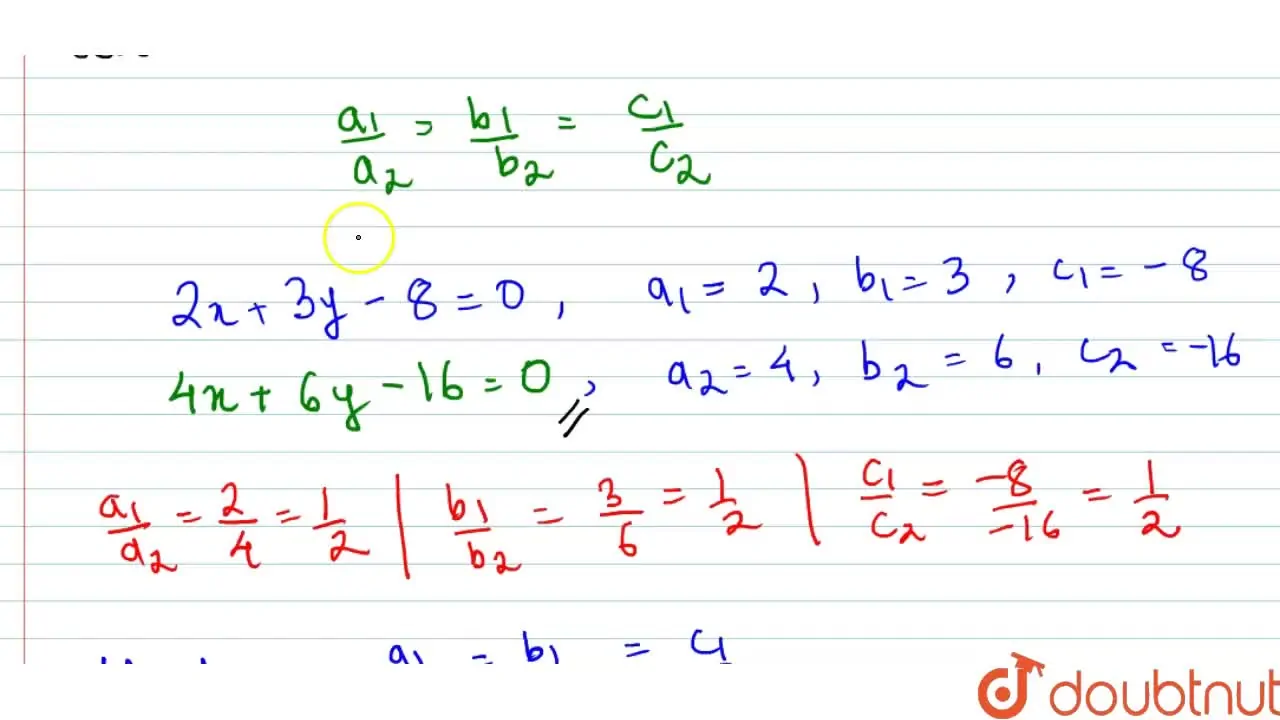 a1/a2 = b1/b2 = c1/c2
2x + 3y - 8 = 0, a1 = 2, b1 = 3, c1 = -8
4x + 6y - 16 = 0, a2 = 4, b2 = 6, c2 = -16
a1/a2 = 2/4 = 1/2 | b1/b2 = 3/6 = 1/2 | c1/c2 = -8/-16 = 1/2
a1 = b1 = c1
doubtnut